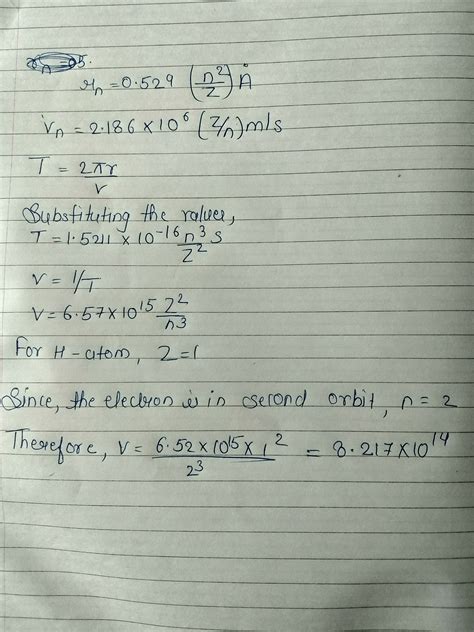 5.
rn = 0.529 (n²/Z) Å
Vn = 2.186 × 10⁶ (Z/n) m/s
T = 2πr/v
Substituting the values,
T = 1.5211 × 10⁻¹⁶ n³/Z² s
ν = 1/T
ν = 6.57 × 10¹⁵ Z²/n³
For H-atom, Z = 1
Since, the electron is in second orbit, n = 2
Therefore, ν = 6.52 × 10¹⁵ × 1²/2³ = 8.217 × 10¹⁴